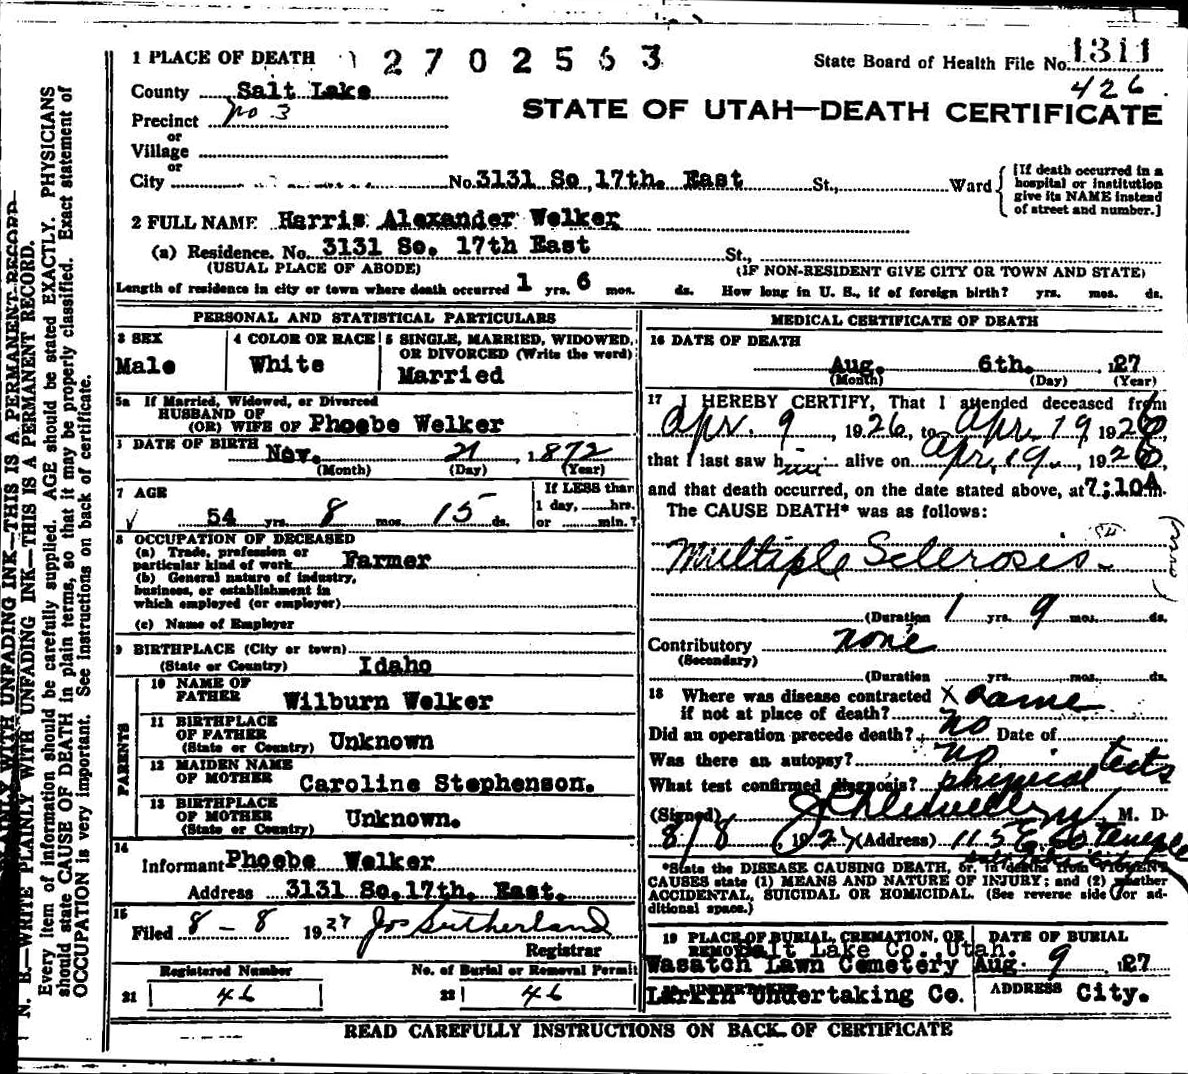 1 PLACE OF DEATH 2702563
State Board of Health File No. 1311
426
County Salt Lake
Precinct No. 3
or
Village
or
City No. 3131 So, 17th. East St., Ward
[If death occurred in a hospital or institution give its NAME instead of street and number.]
STATE OF UTAH—DEATH CERTIFICATE
2 FULL NAME Harris Alexander Welker
(a) Residence. No. 3131 So. 17th East St.,
(USUAL PLACE OF ABODE) (IF NON-RESIDENT GIVE CITY OR TOWN AND STATE)
Length of residence in city or town where death occurred 1 yrs. 6 mos. ds. How long in U. S., if of foreign birth? yrs. mos. ds.
PERSONAL AND STATISTICAL PARTICULARS
3 SEX
Male
4 COLOR OR RACE
White
5 SINGLE, MARRIED, WIDOWED,
OR DIVORCED (Write the word)
Married
5a If Married, Widowed, or Divorced
HUSBAND OF
(OR) WIFE OF Phoebe Welker
DATE OF BIRTH Nov. 21, 1872
(Month) (Day) (Year)
7 AGE
54 yrs. 8 mos. 15 ds.
If LESS than
1 day, hrs.
or min.?
8 OCCUPATION OF DECEASED
(a) Trade, profession or
particular kind of work Farmer
(b) General nature of industry,
business, or establishment in
which employed (or employer)
(c) Name of Employer
9 BIRTHPLACE (City or town)
(State or Country) Idaho
PARENTS
10 NAME OF
FATHER Wilburn Welker
11 BIRTHPLACE
OF FATHER
(State or Country) Unknown
12 MAIDEN NAME
OF MOTHER Caroline Stephenson.
13 BIRTHPLACE
OF MOTHER
(State or Country) Unknown.
14
Informant Phoebe Welker
Address 3131 So.17th. East.
15
Filed 8-8 1927 Jos Sutherland
Registrar
Registered Number No. of Burial or Removal Permit
21 46 22 46
MEDICAL CERTIFICATE OF DEATH
16 DATE OF DEATH
Aug. 6th. 127
(Month) (Day) (Year)
17 I HEREBY CERTIFY, That I attended deceased from
Apr. 9, 1926, to Apr. 19 1926
that I last saw him alive on Apr. 19, 1926
and that death occurred, on the date stated above, at 7:10 A m.
The CAUSE DEATH* was as follows:
Multiple Sclerosis
(Duration 1 yrs. 9 mos. ds.
Contributory none
(Secondary)
(Duration yrs. mos. ds.
18 Where was disease contracted X same
if not at place of death?
Did an operation precede death? no Date of
Was there an autopsy? no
What test confirmed diagnosis? physical tests
(Signed) M. D.
8/8 1927 (Address) 115 E. So Temple
*State the DISEASE CAUSING DEATH, or, in deaths from VIOLENT
CAUSES state (1) MEANS AND NATURE OF INJURY; and (2) whether
ACCIDENTAL, SUICIDAL OR HOMICIDAL. (See reverse side for ad-
ditional space.)
19 PLACE OF BURIAL, CREMATION, OR
REMOVAL Salt Lake Co., Utah.
Wasatch Lawn Cemetery
DATE OF BURIAL
Aug. 9 127
20 UNDERTAKER
Larkin Undertaking Co.
ADDRESS City.
READ CAREFULLY INSTRUCTIONS ON BACK OF CERTIFICATE
N. B.—WRITE PLAINLY WITH UNFADING INK—THIS IS A PERMANENT RECORD.
Every item of information should be carefully supplied. AGE should be stated EXACTLY. PHYSICIANS
should state CAUSE OF DEATH in plain terms, so that it may be properly classified. Exact statement of
OCCUPATION is very important. See instructions on back of certificate.